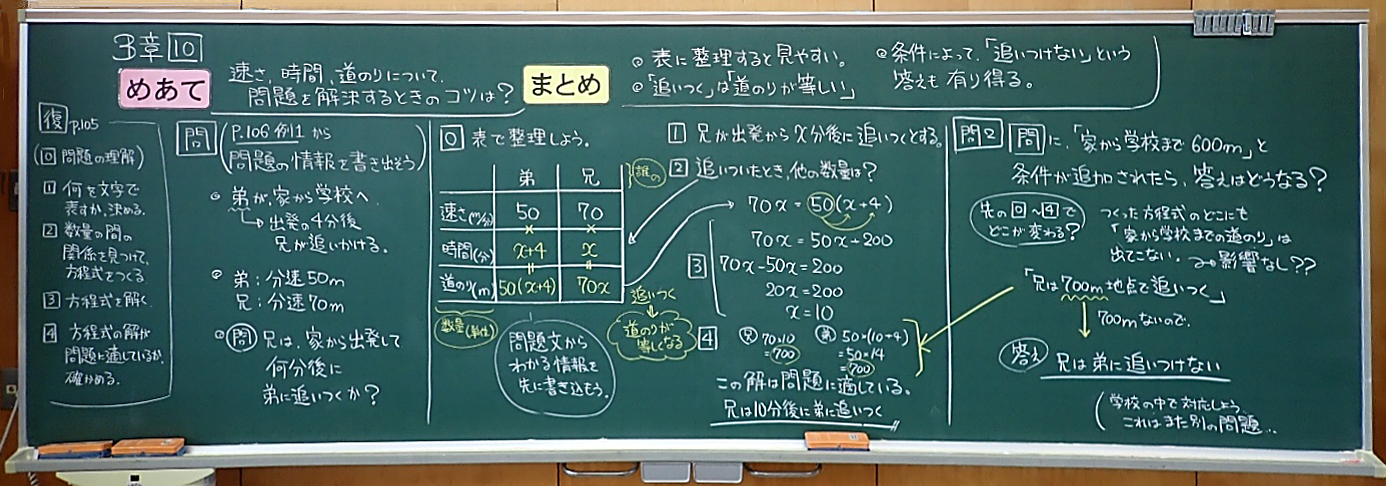 3章 10
めあて
速さ、時間、道のりについて、
問題を解決するときのコツは？
まとめ
◎ 表に整理すると見やすい。
◎「追いつく」は「道のりが等しい」
◎条件によって、「追いつけない」という
答えも有り得る。
復 p.105
(0 問題の理解)
1 何を文字で
表すか、決める。
2 数量の間の
関係を見つけて、
方程式をつくる
3 方程式を解く。
4 方程式の解が
問題に適しているか、
確かめる。
問
(P.106 例1から
問題の情報を書き出そう)
◎ 弟が、家から学校へ。
→ 出発の4分後
兄が追いかける。
◎ 弟：分速50m
兄：分速70m
◎ 問 兄は、家から出発して
何分後に
弟に追いつくか？
0 表で整理しよう。
弟 兄 } 誰の
速さ(m/分) 50 70
× ×
時間(分) x+4 x
॥ ॥
道のり(m) 50(x+4) 70x
数量(単位)
問題文から
わかる情報を
先に書き込もう。
追いつく
↓
道のりが
等しくなる
1 兄が出発からx分後に追いつくとする。
2 追いついたとき、他の数量は？
70x = 50(x+4)
70x = 50x+200
3 70x-50x=200
20x=200
x=10
4 兄 70×10
=700
弟 50×(10+4)
=50×14
=700
この解は問題に適している。
兄は10分後に弟に追いつく
問2 問に、「家から学校まで600m」と
条件が追加されたら、答えはどうなる？
先の0〜4で
どこが変わる？
つくった方程式のどこにも
「家から学校までの道のり」は
出てこない。→影響なし??
「兄は700m地点で追いつく」
↓ 700mないので、
答え 兄は弟に追いつけない
(学校の中で対応しよう
これはまた別の問題…